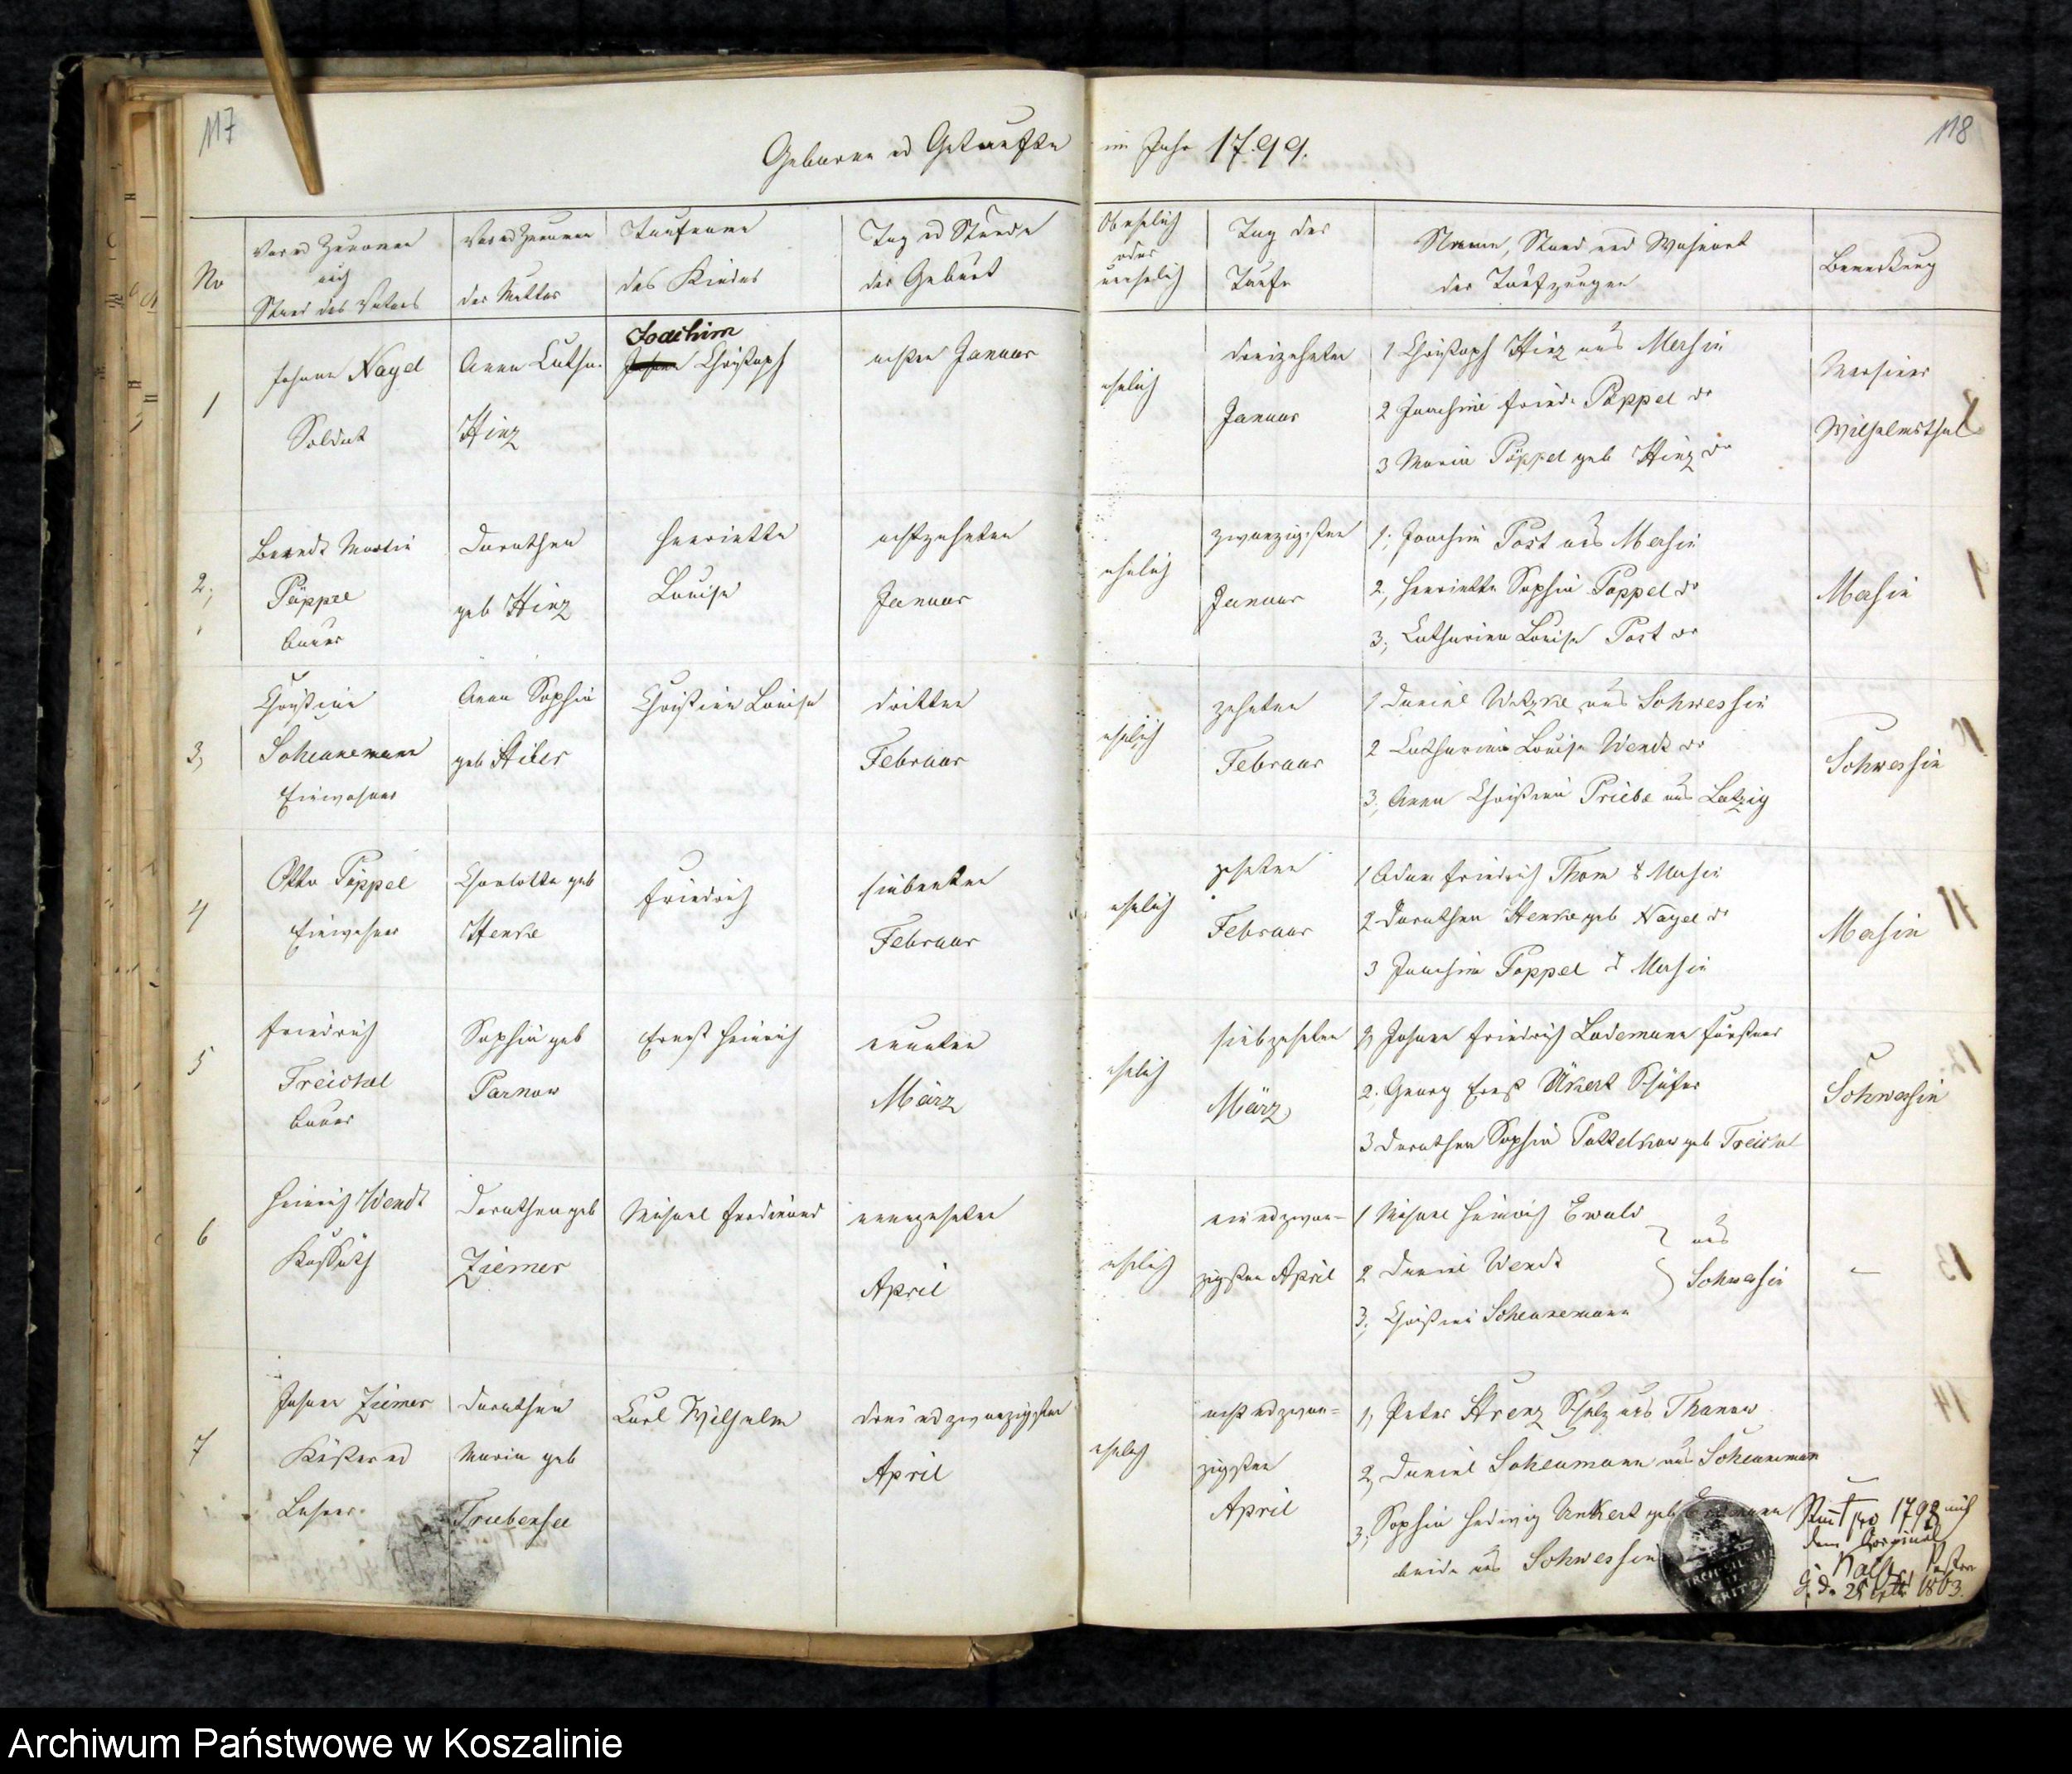 117
118
Geborne ud Getaufte im Jahr 1799.
No
Vor ud Zuname
auch
Stand des Vaters
Vor ud Zuname
der Mutter
Taufname
des Kindes
Tag ud Stunde
der Geburt
Ob ehelich
oder
unehelich
Tag der
Taufe
Name, Stand und Wohnort
der Taufzeugen
Bemerkung
1
Johann Nagel
Soldat
Anna Cathar.
Hinz
Joachim
Johann Christoph
achten Januar
ehelich
dreizehnten
Januar
1 Christoph Hinz aus Mersin
2 Joachim Friedr. Pöppel do
3 Maria Pöppel geb Hinz do
Mersiner
Wilhelmsthal
2,
Berendt Martin
Pöppel
Bauer
Dorothea
geb Hinz
Henriette
Louise
achtzehnten
Januar
ehelich
zwanzigsten
Januar
1, Joachim Post aus Mersin
2, Henriette Sophie Poppel do
3, Catharina Louise Post do
Mersin
3,
Christian
Scheunemann
Einwohner
Anna Sophia
geb
Christine Louise
dritten
Februar
ehelich
zehnten
Februar
1 Daniel Witzke aus Schwessin
2 Catharina Louise Wendt do
3, Anna Christina Priebe aus Latzig
Schwessin
4
Otto Pöppel
Einwohner
Charlotte geb
Henke
Friedrich
siebenten
Februar
ehelich
zehnten
Februar
1 Adam Friedrich Thom Mersin
2 Dorothea Henke geb Nagel do
3 Joachim Poppel Mersin
Mersin
5
Friedrich
Treichel
Bauer
Sophia geb
Parnow
Ernst Heinrich
neunten
März
ehelich
siebzehnten
März
1, Johann Friedrich Lademann Förster
2. Georg Ernst Ükert Schäfer
3 Dorothea Sophia Pattelkow geb Treichel
Schwessin
6
Heinrich Wendt
Kossäth
Dorothea geb
Ziemer
Michael Ferdinand
neunzehnten
April
ehelich
ein ud zwan-
zigsten April
1 Michael Heinrich Ewald
2 Daniel Wendt
3, Christian Scheunemann
aus
Schwessin
7
Johann Ziemer
Küster ud
Lehrer.
Dorothea
Maria geb
Triebensee
Carl Wilhelm
drei ud zwanzigsten
April
ehelich
acht ud zwan-
zigsten
April
1, Peter Strenz Schulz aus Thanow
2, Daniel Scheumann aus Scheunemann
3, Sophia Hedwig Unkert geb
beide aus Schwessin
pro 1798 mit
dem Original
Pastor
1803.
Archiwum Państwowe w Koszalinie